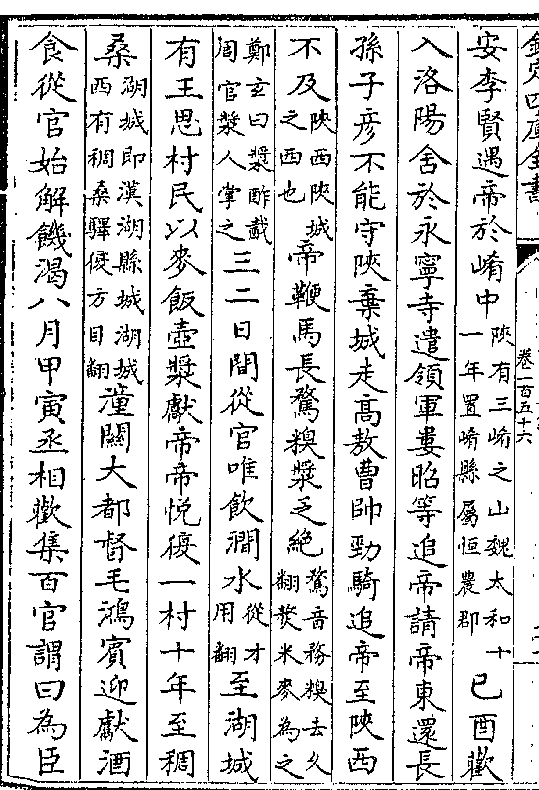 欽定四庫全書
卷一百五十六
安李賢遇帝於崤中陜有三崤之山魏太和十一年置崤縣屬恒農郡己酉歡
入洛陽舍於永寧寺遣領軍婁昭等追帝請帝東還長
孫子彦不能守陜棄城走高敖曹帥勁騎追帝至陜西
不及陜西陜城之西也帝鞭馬長騖糗漿乏絶騖音務糗去久翻熬米麥為之
鄭玄曰漿酢酨周官漿人掌之三二日間從官唯飲澗水從才用翻至湖城
有王思村民以麥飯壺漿獻帝帝悅復一村十年至稠
桑湖城即漢湖縣城湖城西有稠桑驛復方目翻潼關大都督毛鴻賓迎獻酒
食從官始解饑渴八月甲寅丞相歡集百官謂曰為臣